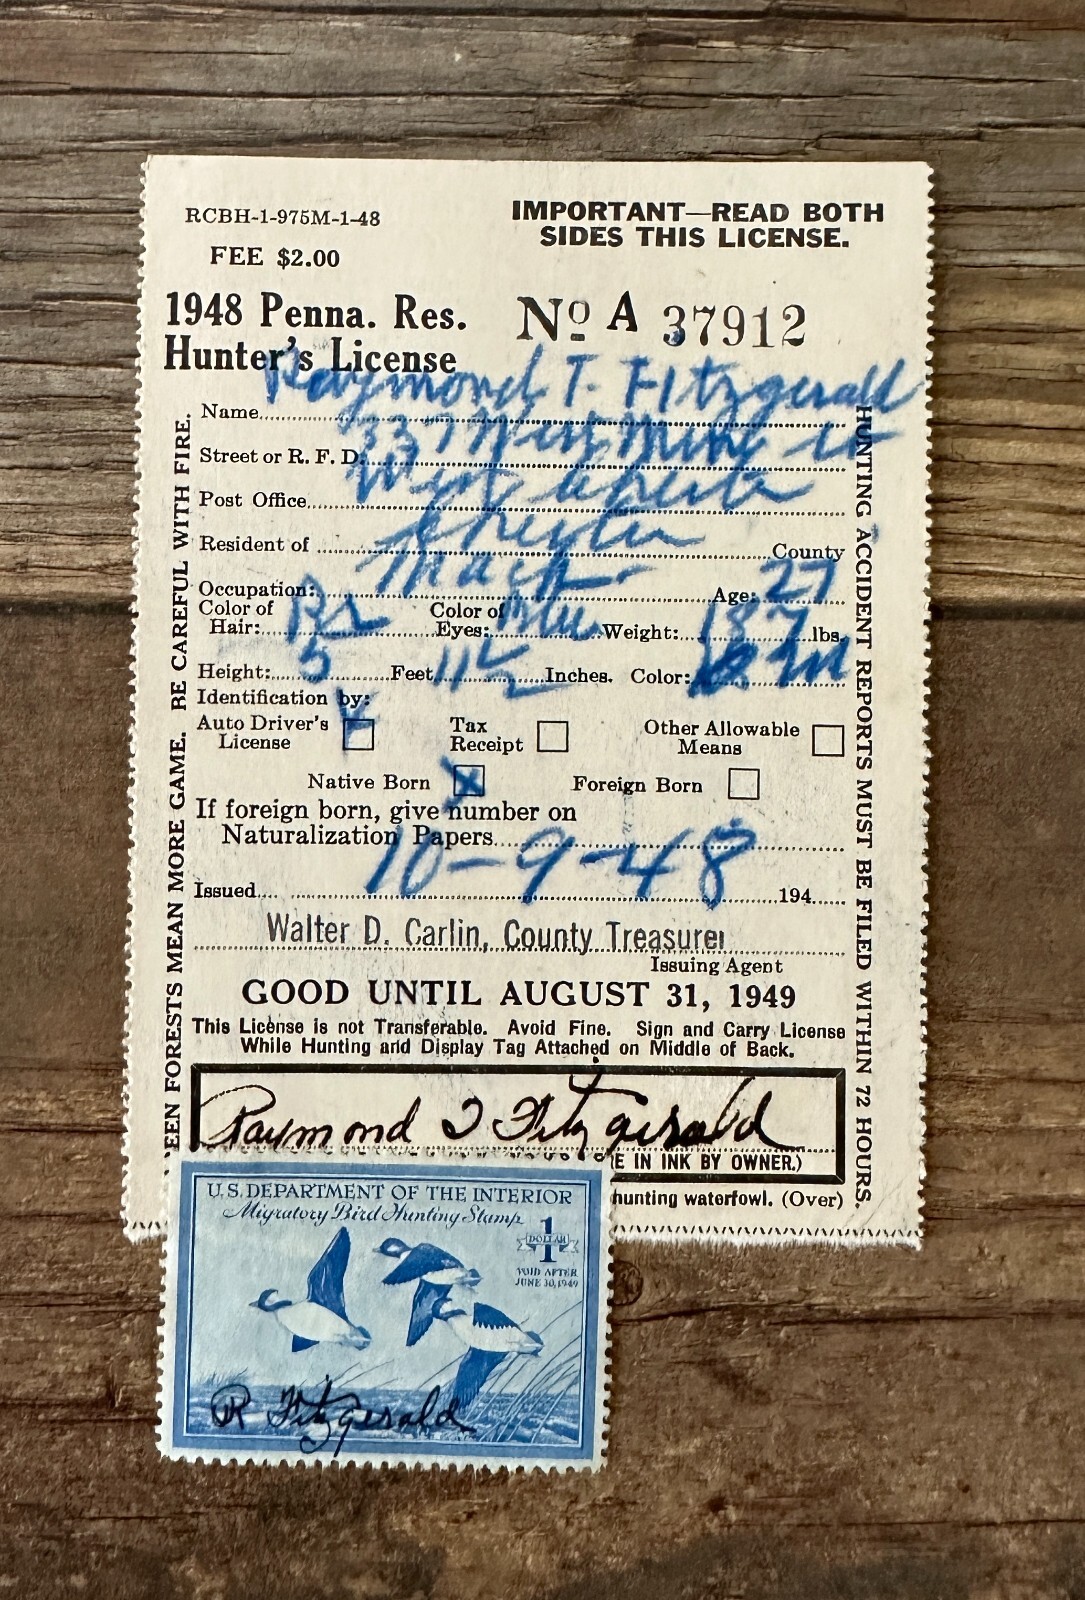 RCBH-1-975M-1-48
IMPORTANT—READ BOTH
SIDES THIS LICENSE.
FEE $2.00
1948 Penna. Res.
Hunter's License
Nº A 37912
Name Raymond T. Fitzgerald
Street or R. F. D. 337 West
Post Office West Chester
Resident of Chester County
Occupation: Mach Age: 27
Color of Hair: Color of Eyes: Blu Weight: 137 lbs.
Height: 5 Feet 11 1/2 Inches. Color:
Identification by:
Auto Driver's License X Tax Receipt Other Allowable Means
Native Born X Foreign Born
If foreign born, give number on
Naturalization Papers
Issued 10-9-48 194
Walter D. Carlin, County Treasurer
Issuing Agent
GOOD UNTIL AUGUST 31, 1949
This License is not Transferable. Avoid Fine. Sign and Carry License
While Hunting and Display Tag Attached on Middle of Back.
Raymond T Fitzgerald
E IN INK BY OWNER.)
hunting waterfowl. (Over)
EEN FORESTS MEAN MORE GAME. BE CAREFUL WITH FIRE.
HUNTING ACCIDENT REPORTS MUST BE FILED WITHIN 72 HOURS.
U.S. DEPARTMENT OF THE INTERIOR
Migratory Bird Hunting Stamp
1
DOLLAR
VOID AFTER
JUNE 30, 1949
R Fitzgerald